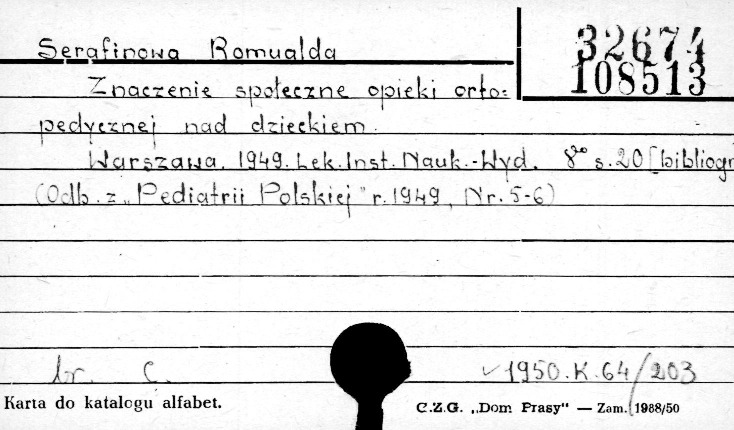 Serafinowa Romualda
32674
108513
Znaczenie społeczne opieki orto=
pedycznej nad dzieckiem.
Warszawa, 1949. Lek. Inst. Nauk.-Wyd. 8° s. 20 [bibliogr
(Odb. z „Pediatrii Polskiej" r. 1949, Nr. 5-6)
br. C.
1950.K.64/203
Karta do katalogu alfabet.
C.Z.G. „Dom Prasy" — Zam. 1988/50